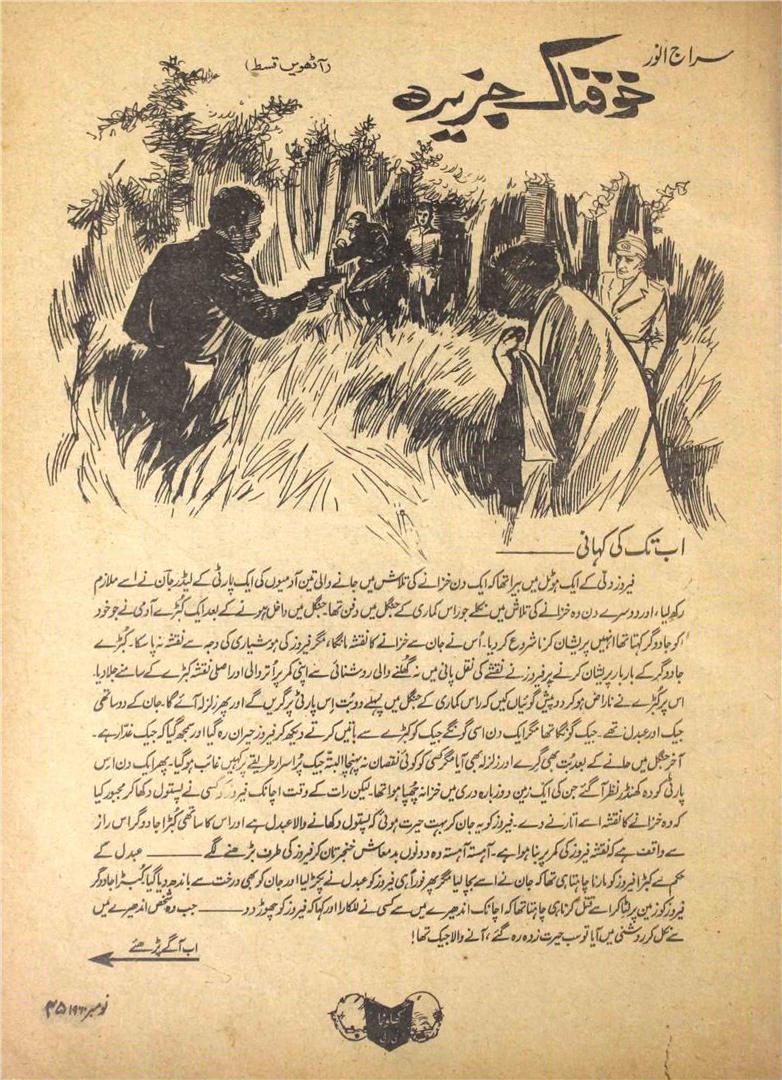 سراج انور
(آٹھویں قسط)
خوفناک جزیرہ
اب تک کی کہانی
فیروز دلّی کے ایک ہوٹل میں بیرا تھا کہ ایک دن خزانے کی تلاش میں جانے والی تین آدمیوں کی ایک پارٹی کے لیڈر جان نے اسے ملازم
رکھ لیا، اور دوسرے دن وہ خزانے کی تلاش میں نکلے جو راس کماری کے جنگل میں دفن تھا جنگل میں داخل ہونے کے بعد ایک کُبڑے آدمی نے جو خود
کو جادوگر کہتا تھا انہیں پریشان کرنا شروع کر دیا۔ اُس نے جان سے خزانے کا نقشہ مانگا، مگر فیروز کی ہوشیاری کی وجہ سے نقشہ نہ پا سکا۔ کُبڑے
جادوگر کے بار بار پریشان کرنے پر فیروز نے نقشے کی نقل پانی میں نہ گھُلنے والی روشنائی سے اپنی کمر پر اُتروالی اور اصلی نقشہ کبڑے کے سامنے جلا دیا۔
اس پر کُبڑے نے ناراض ہو کر دو پیش گوئیاں کیں کہ راس کماری کے جنگل میں پہلے دو بُت اِس پارٹی پر گریں گے اور پھر زلزلہ آئے گا۔ جان کے دو ساتھی
جیک اور عبدل تھے۔ جیک گونگا تھا مگر ایک دن اسی گونگے جیک کو کبڑے سے باتیں کرتے دیکھ کر فیروز حیران رہ گیا اور سمجھ گیا کہ جیک غدّار ہے۔
آخر جنگل میں جانے کے بعد بُت بھی گِرے اور زلزلہ بھی آیا مگر کسی کو کوئی نقصان نہ پہنچا البتہ جیک پُراسرار طریقے پر کہیں غائب ہوگیا۔ پھر ایک دن اس
پارٹی کو وہ کھنڈر نظر آگئے جن کی ایک زمین دوز بارہ دری میں خزانہ چھپا ہوا تھا۔ لیکن رات کے وقت اچانک فیروز کو کسی نے پستول دکھا کر مجبور کیا
کہ وہ خزانے کا نقشہ اسے اتارنے دے۔ فیروز کو یہ جان کر بہت حیرت ہوئی کہ پستول دکھانے والا عبدل ہے اور اس کا ساتھی کُبڑا جادوگر اس راز
سے واقف ہے کہ نقشہ فیروز کی کمر پر بنا ہوا ہے۔ آہستہ آہستہ وہ دونوں بدمعاش خنجر تان کر فیروز کی طرف بڑھنے لگے عبدل کے
حکم سے کبڑا فیروز کو مارنا چاہتا ہی تھا کہ جان نے اسے بچا لیا مگر پھر فوراً ہی فیروز کو عبدل نے پکڑ لیا اور جان کو بھی درخت سے باندھ دیا گیا، کُبڑا جادوگر
فیروز کو زمین پر لٹا کر اسے قتل کرنا ہی چاہتا تھا کہ اچانک اندھیرے میں سے کسی نے للکارا اور کہا کہ فیروز کو چھوڑ دو جب وہ شخص اندھیرے میں
سے نکل کر روشنی میں آیا تو سب حیرت زدہ رہ گئے، آنے والا جیک تھا!
اب آگے پڑھئے
کھلونا
نومبر ۱۹۶۰ ۳۵